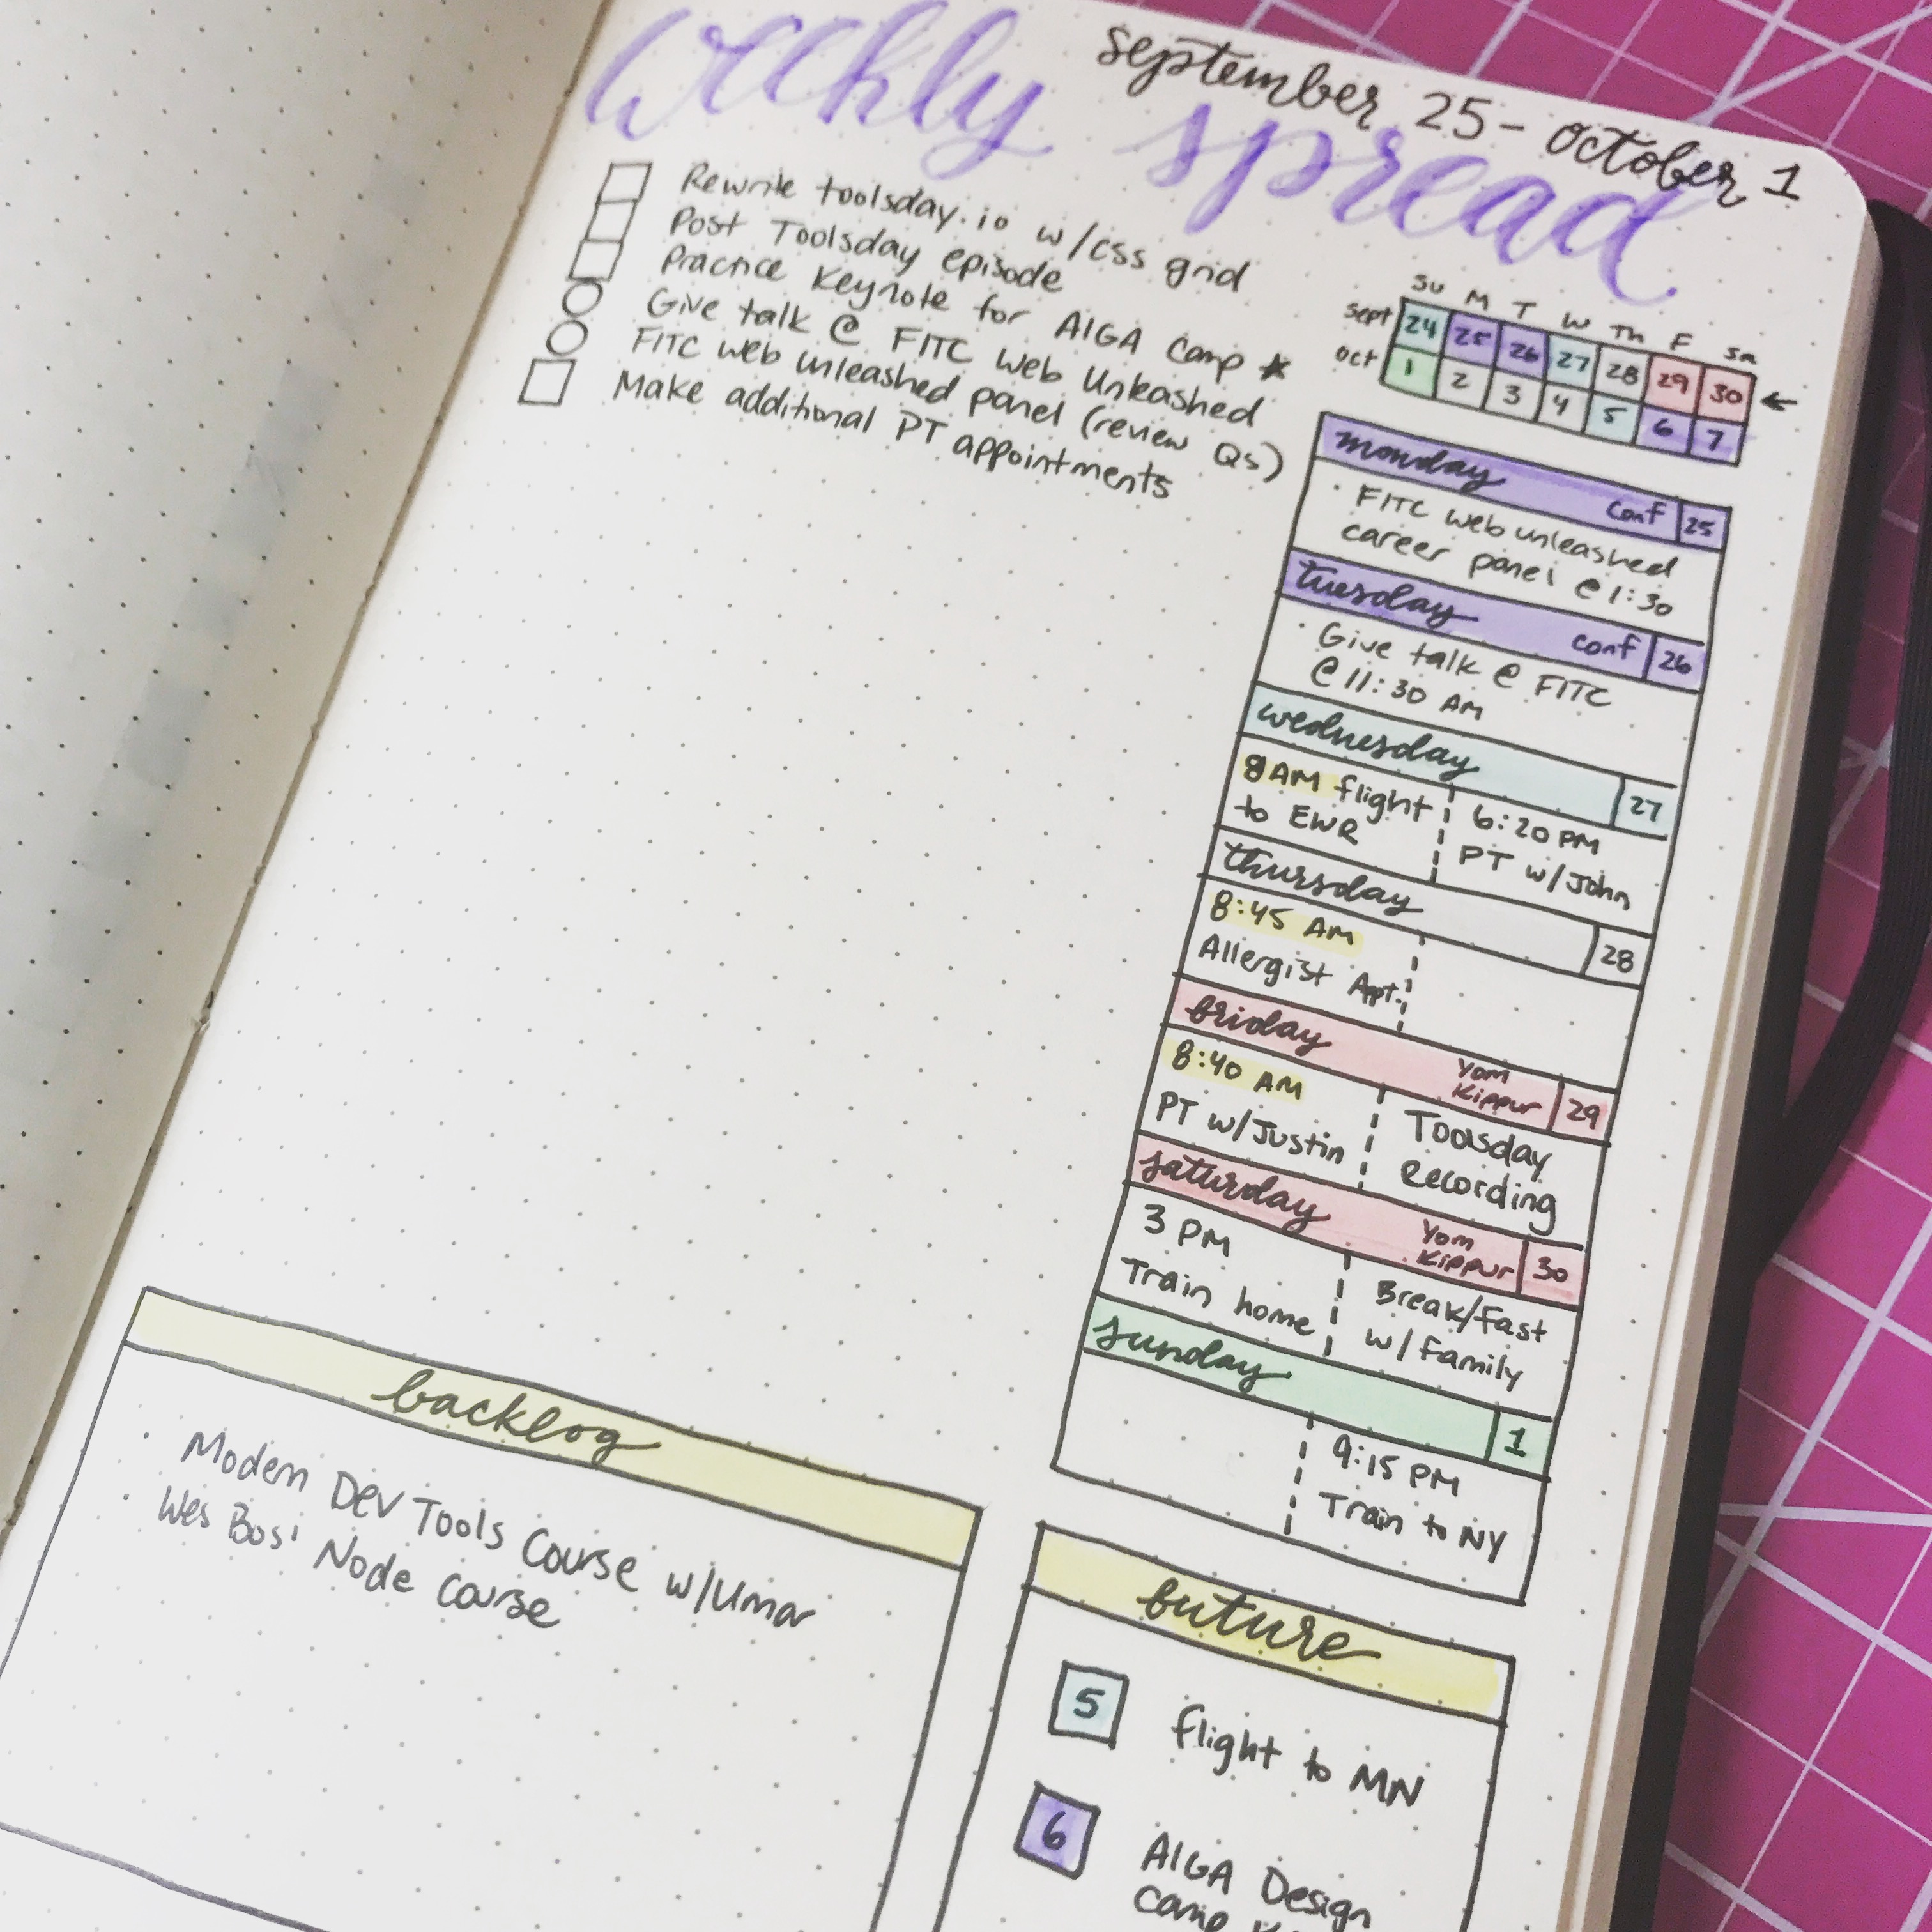 weekly spread
september 25 - october 1
Rewrite toolsday.io w/css grid
Post Toolsday episode
Practice Keynote for AIGA Camp ★
Give talk @ FITC Web Unleashed
FITC web unleashed panel (review Qs)
Make additional PT appointments
Su M T W Th F Sa
Sept 24 25 26 27 28 29 30 ←
Oct 1 2 3 4 5 6 7
monday conf 25
· FITC web unleashed
career panel @ 1:30
tuesday conf 26
· Give talk @ FITC
@ 11:30 AM
wednesday 27
8AM flight
to EWR
6:20 PM
PT w/John
thursday 28
8:45 AM
Allergist Appt.
friday Yom Kippur 29
8:40 AM
PT w/Justin
Toolsday
Recording
saturday Yom Kippur 30
3 PM
Train home
Break/Fast
w/ Family
sunday 1
9:15 PM
Train to NY
backlog
· Modern Dev Tools Course w/Umar
· Wes Bos' Node course
future
5 flight to MN
6 AIGA Design
Camp